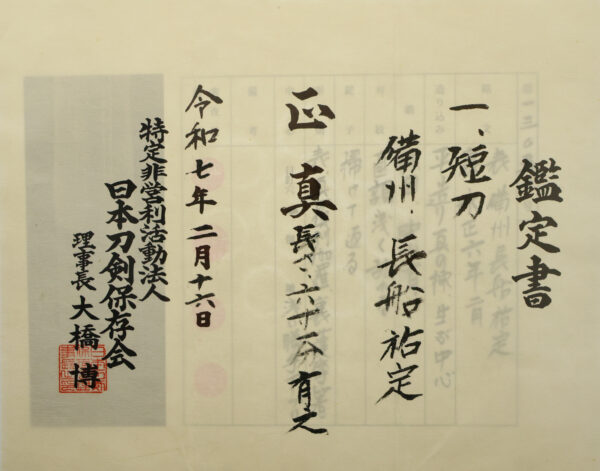 鑑定書
一、短刀
備州、長船祐定
正真 長さ、六寸 有之
令和七年二月十六日
特定非営利活動法人
日本刀剣保存会
理事長 大橋 博